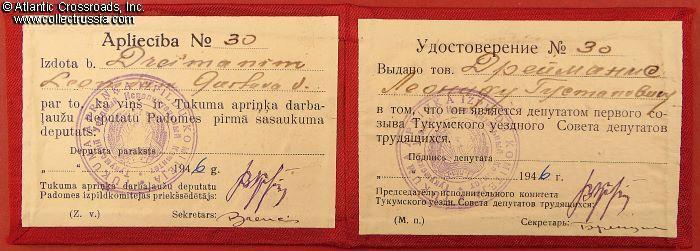 © Atlantic Crossroads, Inc.
www.collectrussia.com
Apliecība № 30
Izdota b. Dreimanim
Leo Gustava d.
par to, ka viņš ir Tukuma apriņķa darba-
ļaužu deputatu Padomes pirmā sasaukuma
deputats.
Deputāta paraksts
194 6 g.
Tukuma apriņķa darbaļaužu deputatu
Padomes izpildkomitejas priekšsēdētājs:
(Z. v.) Sekretars:
Удостоверение № 30
Выдано тов. Дрейманис
Леониду Густавовичу
в том, что он является депутатом первого со-
зыва Тукумского уездного Совета депутатов
трудящихся.
Подпись депутата
194 6 г.
Председатель исполнительного комитета
Тукумского уездн. Совета депутатов трудящихся:
(М. п.) Секретарь: